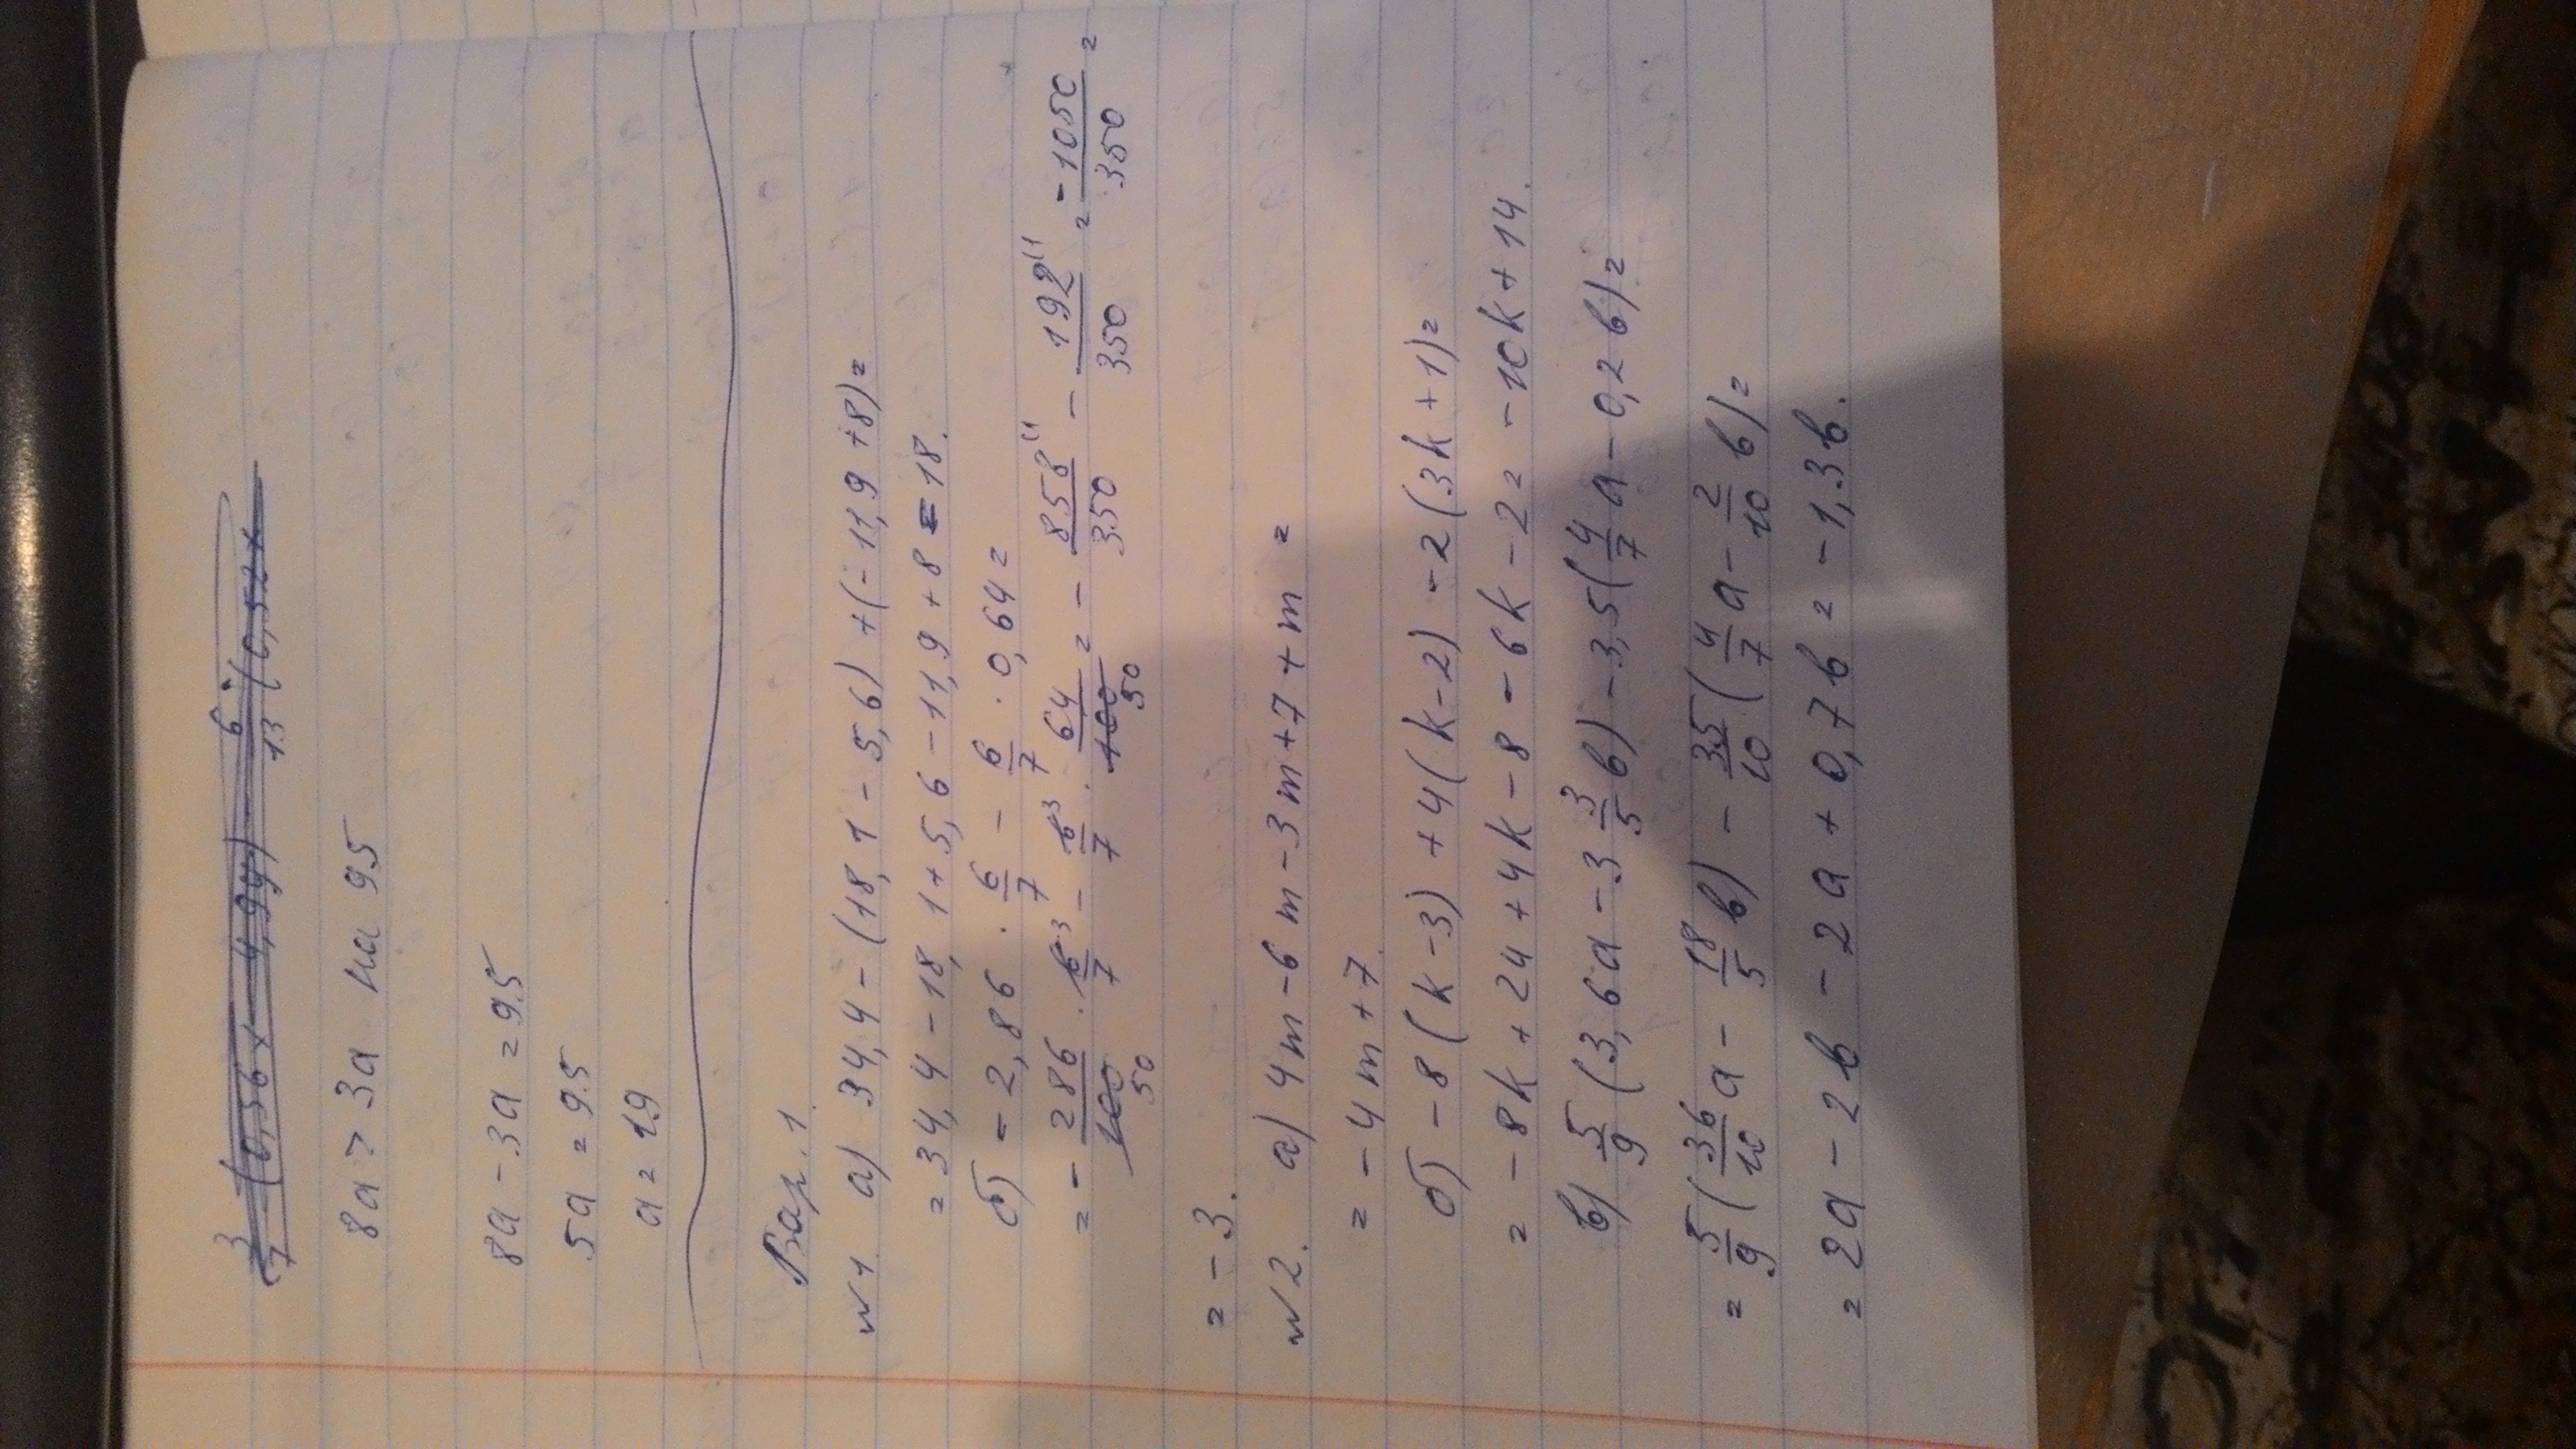 8a > 3a на 95
8a - 3a = 95
5a = 95
a = 19
Вар. 1.
№1. а) 34,4 - (18,1 - 5,6) + (-11,9 + 8) =
= 34,4 - 18,1 + 5,6 - 11,9 + 8 = 18.
б) - 2,86 · 6/7 - 6/7 · 0,64 =
= - 286/100 50 · 6 3/7 - 6 3/7 · 64/100 50 = - 858/350 - 192/350 = -1050/350 =
= -3.
№2. а) 4m - 6m - 3m + 7 + m =
= -4m + 7.
б) -8(k - 3) + 4(k - 2) - 2(3k + 1) =
= -8k + 24 + 4k - 8 - 6k - 2 = -10k + 14.
в) 5/9 (3,6a - 3 3/5 b) - 3,5(4/7 a - 0,2b) =
= 5/9 (36/10 a - 18/5 b) - 35/10 (4/7 a - 2/10 b) =
= 2a - 2b - 2a + 0,7b = -1,3b.